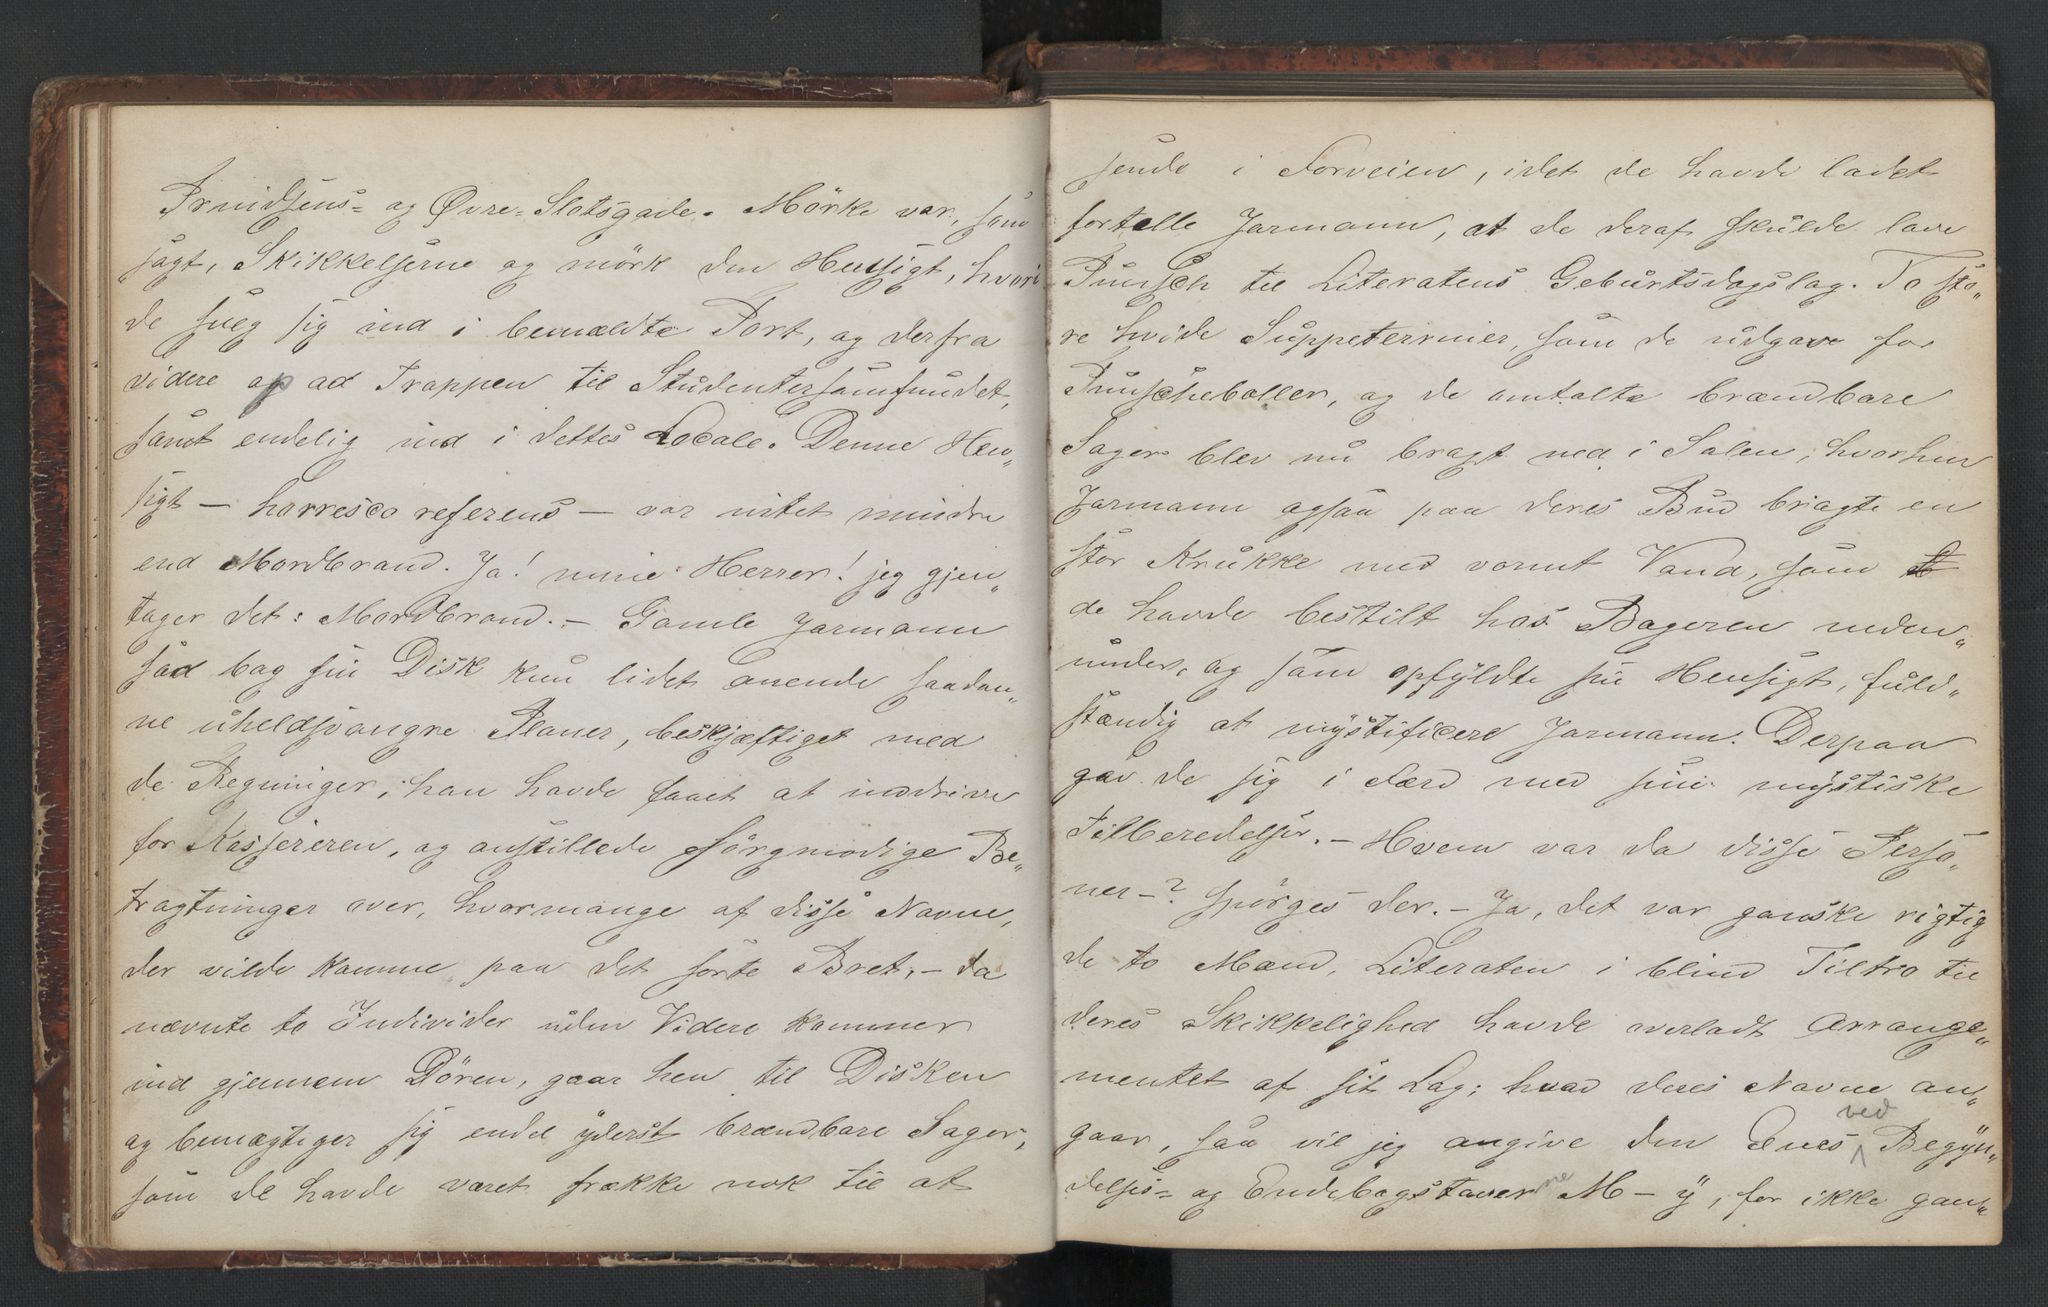 Prindsens= og Øvre=Slotsgade. Mörke var, som
sagt, Skikkelserne og mörk den Hensigt, hvori
de sneg sig ind i bemældte Port, og derfra
videre op ad Trappen til Studentersamfundet,
samt endelig ind i dettes Locale. Denne Hen„
sigt — horresco referens — var intet mindre
end Mordbrand. Ja! mine Herrer! jeg gjen„
tager det: Mordbrand. — Gamle Jarmann
sad bag sin Disk kun lidet anende saadan„
ne uheldsvangre Planer, beskjæftiget med
de Regninger, han havde faaet at inddrive
for Kassereren, og anstillede sörgmodige Be„
tragtninger over, hvormange af disse Navne,
der vilde komme paa det sorte Bret, — da
nævnte to Individer uden Videre kommer
ind gjennem Dören, gaar hen til Disken
og bemægtiger sig endel yderst brændbare Sager,
som de havde været frække nok til at
sende i Forveien, idet de havde ladet
fortælle Jarmann, at de deraf skulde lave
Punsch til Literatens Geburtsdagslag. To sto„
re hvide Suppeterriner, som de udgave for
Punscheboller, og de omtalte brændbare
Sager blev nu bragt ned i Salen, hvorhen
Jarmann ogsaa paa deres Bud bragte en
stor Krukke med varmt Vand, som
de havde bestilt hos Bageren neden„
under, og som opfyldte sin Hensigt, fuld„
stændig at mystificere Jarmann. Derpaa
gav de sig i Færd med sine mystiske
Tilberedelser. — Hvem var da disse Perso„
ner —? spörges der. — Ja, det var ganske rigtig
de to Mænd, Literaten i blind Tiltro til
deres Skikkelighed havde overladt Arrange„
mentet af sit Lag; hvad deres Navne an„
gaar, saa vil jeg angive den Enes ved Begyn„
delses= og Endebogstaverne M — y, for ikke gan„